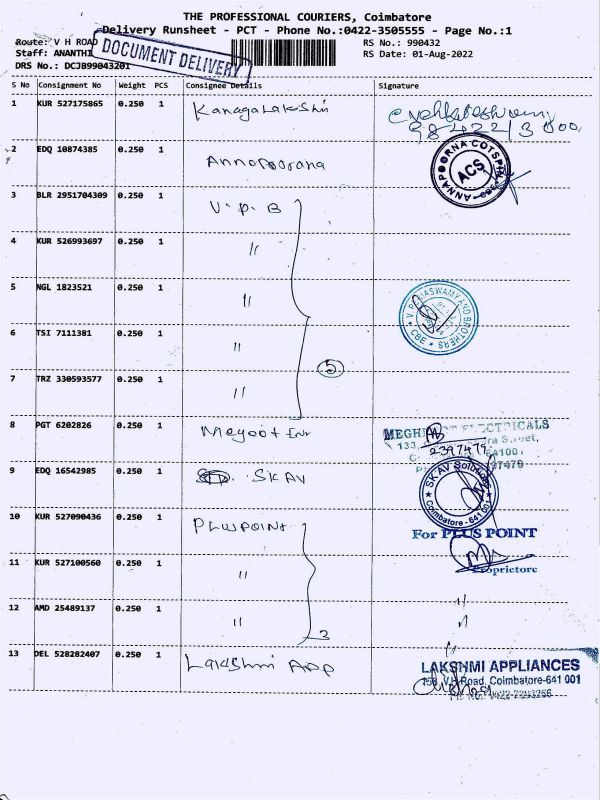 THE PROFESSIONAL COURIERS, Coimbatore
Delivery Runsheet - PCT - Phone No.:0422-3505555 - Page No.:1
Route: V H ROAD
RS No.: 990432
Staff: ANANTHI
RS Date: 01-Aug-2022
DRS No.: DCJB99043201
DOCUMENT DELIVERY
S No Consignment No Weight PCS Consignee Details Signature
1 KUR 527175865 0.250 1 Kanagalakshmi
98422/3000.
2 EDQ 10874385 0.250 1 Annoporana
ANNAPOORNA COTSPIN ACS
3 BLR 2951704309 0.250 1 V.P.B
4 KUR 526993697 0.250 1 "
5 NGL 1823521 0.250 1 "
AND BROTHERS * CBE *
6 TSI 7111381 0.250 1 "
5
7 TRZ 330593577 0.250 1 "
8 PGT 6202826 0.250 1 Meyoot Ent
MEGH ELECTRICALS
133, Street,
2397479
9 EDQ 16542985 0.250 1 SKAV
SK AV Solutions
Coimbatore - 641 001
10 KUR 527090436 0.250 1 PLUSPOINT
For PLUS POINT
Proprietore
11 KUR 527100560 0.250 1 "
12 AMD 25489137 0.250 1 " "
3
13 DEL 528282407 0.250 1 Lakshmi APP
LAKSHMI APPLIANCES
V.H.Road, Coimbatore-641 001